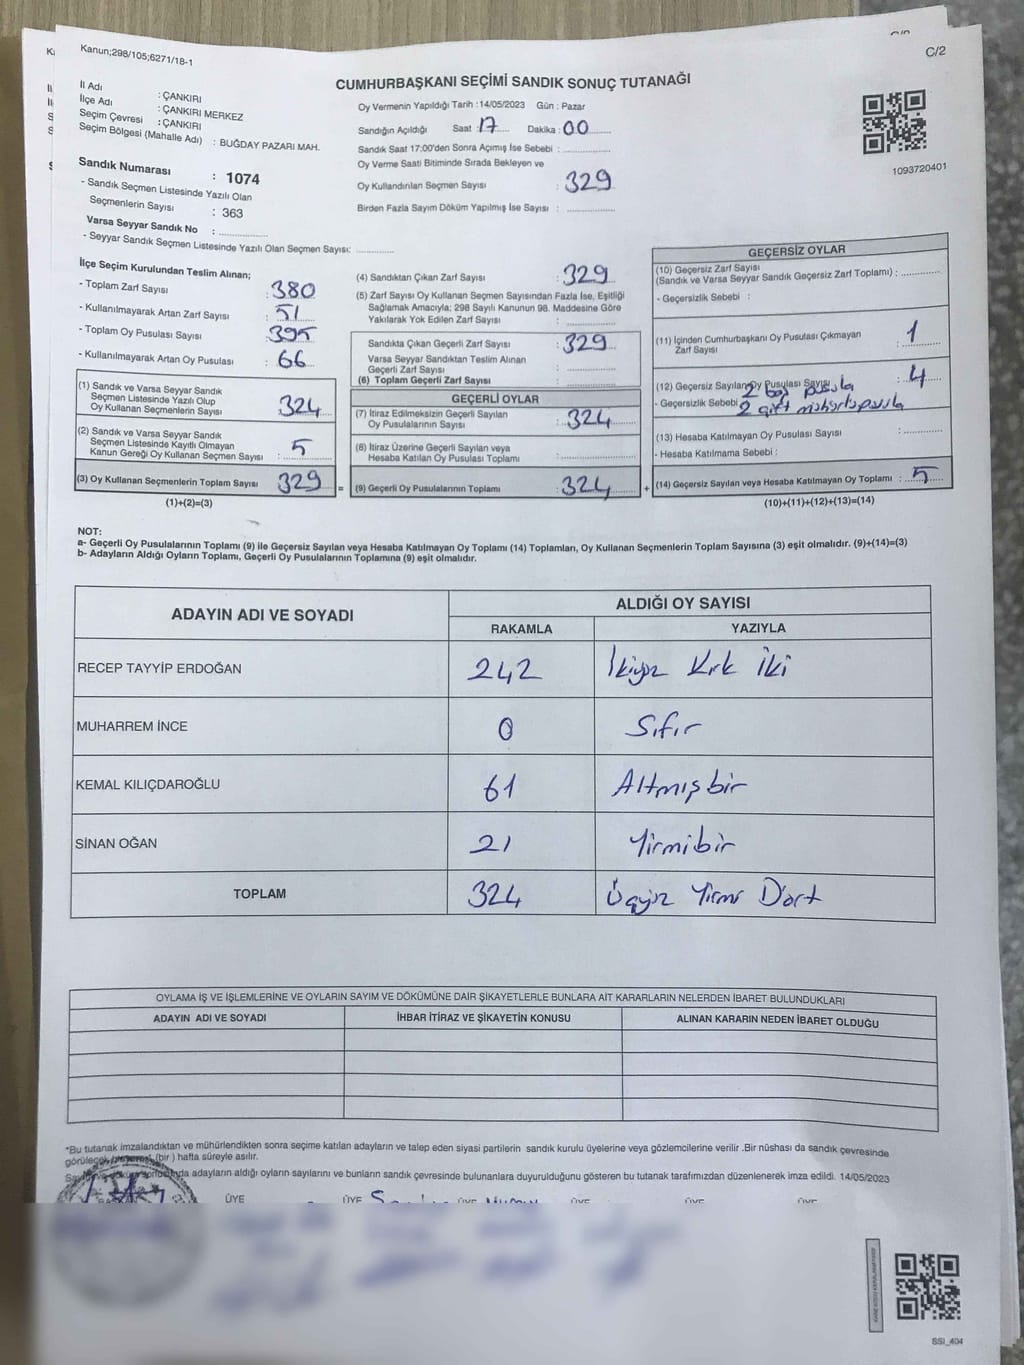 Kanun;298/105;6271/18-1
C/2
CUMHURBAŞKANI SEÇİMİ SANDIK SONUÇ TUTANAĞI
İl Adı : ÇANKIRI
İlçe Adı : ÇANKIRI MERKEZ
Seçim Çevresi : ÇANKIRI
Seçim Bölgesi (Mahalle Adı) : BUĞDAY PAZARI MAH.
Sandık Numarası : 1074
- Sandık Seçmen Listesinde Yazılı Olan
Seçmenlerin Sayısı : 363
Varsa Seyyar Sandık No :
- Seyyar Sandık Seçmen Listesinde Yazılı Olan Seçmen Sayısı:
Oy Vermenin Yapıldığı Tarih : 14/05/2023 Gün : Pazar
Sandığın Açıldığı Saat : 17 Dakika : 00
Sandık Saat 17:00'den Sonra Açımış İse Sebebi :
Oy Verme Saati Bitiminde Sırada Bekleyen ve
Oy Kullandırılan Seçmen Sayısı : 329
Birden Fazla Sayım Döküm Yapılmış İse Sayısı :
1093720401
İlçe Seçim Kurulundan Teslim Alınan;
- Toplam Zarf Sayısı : 380
- Kullanılmayarak Artan Zarf Sayısı : 51
- Toplam Oy Pusulası Sayısı : 395
- Kullanılmayarak Artan Oy Pusulası : 66
(1) Sandık ve Varsa Seyyar Sandık
Seçmen Listesinde Yazılı Olup
Oy Kullanan Seçmenlerin Sayısı : 324
(2) Sandık ve Varsa Seyyar Sandık
Seçmen Listesinde Kayıtlı Olmayan
Kanun Gereği Oy Kullanan Seçmen Sayısı : 5
(3) Oy Kullanan Seçmenlerin Toplam Sayısı : 329
(1)+(2)=(3)
(4) Sandıktan Çıkan Zarf Sayısı : 329
(5) Zarf Sayısı Oy Kullanan Seçmen Sayısından Fazla İse, Eşitliği
Sağlamak Amacıyla; 298 Sayılı Kanunun 98. Maddesine Göre
Yakılarak Yok Edilen Zarf Sayısı :
Sandıkta Çıkan Geçerli Zarf Sayısı : 329
Varsa Seyyar Sandıktan Teslim Alınan
Geçerli Zarf Sayısı :
(6) Toplam Geçerli Zarf Sayısı :
GEÇERLİ OYLAR
(7) İtiraz Edilmeksizin Geçerli Sayılan
Oy Pusulalarının Sayısı : 324
(8) İtiraz Üzerine Geçerli Sayılan veya
Hesaba Katılan Oy Pusulası Toplamı :
= (9) Geçerli Oy Pusulalarının Toplamı : 324
GEÇERSİZ OYLAR
(10) Geçersiz Zarf Sayısı
(Sandık ve Varsa Seyyar Sandık Geçersiz Zarf Toplamı) :
- Geçersizlik Sebebi :
(11) İçinden Cumhurbaşkanı Oy Pusulası Çıkmayan
Zarf Sayısı : 1
(12) Geçersiz Sayılan Oy Pusulası Sayısı : 4
2 boş pusula
- Geçersizlik Sebebi : 2 çift mühürlü pusula
(13) Hesaba Katılmayan Oy Pusulası Sayısı :
- Hesaba Katılmama Sebebi :
+ (14) Geçersiz Sayılan veya Hesaba Katılmayan Oy Toplamı : 5
(10)+(11)+(12)+(13)=(14)
NOT:
a- Geçerli Oy Pusulalarının Toplamı (9) ile Geçersiz Sayılan veya Hesaba Katılmayan Oy Toplamı (14) Toplamları, Oy Kullanan Seçmenlerin Toplam Sayısına (3) eşit olmalıdır. (9)+(14)=(3)
b- Adayların Aldığı Oyların Toplamı, Geçerli Oy Pusulalarının Toplamına (9) eşit olmalıdır.
ADAYIN ADI VE SOYADI ALDIĞI OY SAYISI
RAKAMLA YAZIYLA
RECEP TAYYİP ERDOĞAN 242 İkiyüz Kırk İki
MUHARREM İNCE 0 Sıfır
KEMAL KILIÇDAROĞLU 61 Altmışbir
SİNAN OĞAN 21 Yirmibir
TOPLAM 324 Üçyüz Yirmi Dört
OYLAMA İŞ VE İŞLEMLERİNE VE OYLARIN SAYIM VE DÖKÜMÜNE DAİR ŞİKAYETLERLE BUNLARA AİT KARARLARIN NELERDEN İBARET BULUNDUKLARI
ADAYIN ADI VE SOYADI İHBAR İTİRAZ VE ŞİKAYETİN KONUSU ALINAN KARARIN NEDEN İBARET OLDUĞU
*Bu tutanak imzalandıktan ve mühürlendikten sonra seçime katılan adayların ve talep eden siyasi partilerin sandık kurulu üyelerine veya gözlemcilerine verilir .Bir nüshası da sandık çevresinde
görülecek (bir ) hafta süreyle asılır.
adayların aldığı oyların sayılarını ve bunların sandık çevresinde bulunanlara duyurulduğunu gösteren bu tutanak tarafımızdan düzenlenerek imza edildi. 14/05/2023
ÜYE ÜYE ÜYE ÜYE ÜYE
SSI_404